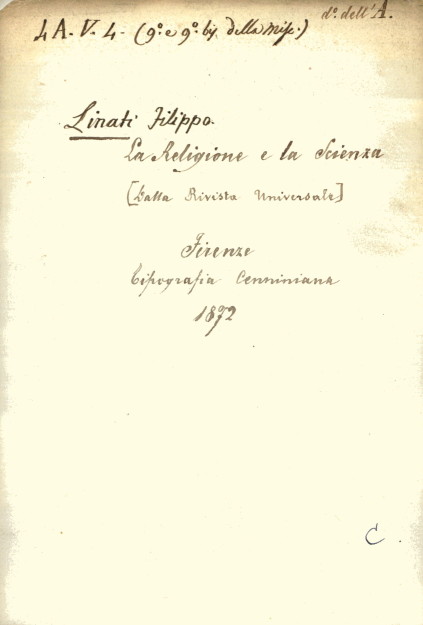 d.º dell'A.
4 A. V. 4. (9º e 9º by. della Misc.)
Linati Filippo.
La Religione e la Scienza
[Dalla Rivista Universale]
Firenze
Tipografia Cenniniana
1872
C.